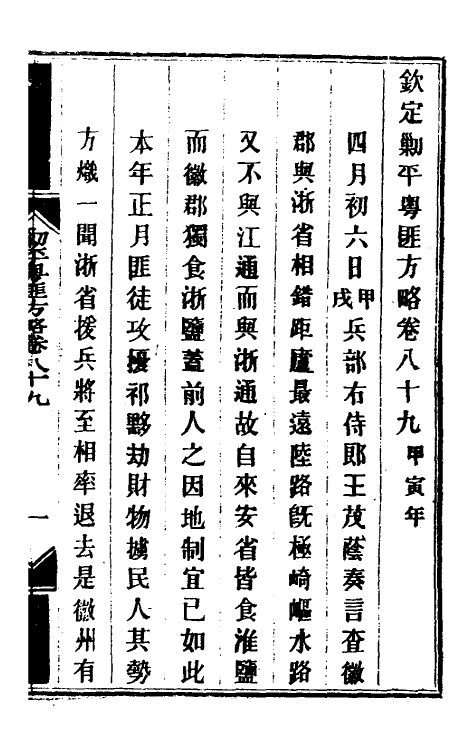 欽定剿平粵匪方略卷八十九甲寅年
四月初六日甲戌兵部右侍郎王茂蔭奏言查徽
郡與浙省相錯距廬最遠陸路旣極崎嶇水路
又不與江通而與浙通故自來安省皆食淮鹽
而徽郡獨食浙鹽蓋前人之因地制宜已如此
本年正月匪徒攻擾祁黟劫財物擄民人其勢
方熾一聞浙省援兵將至相率退去是徽州有
剿平粵匪方略卷八十九
一